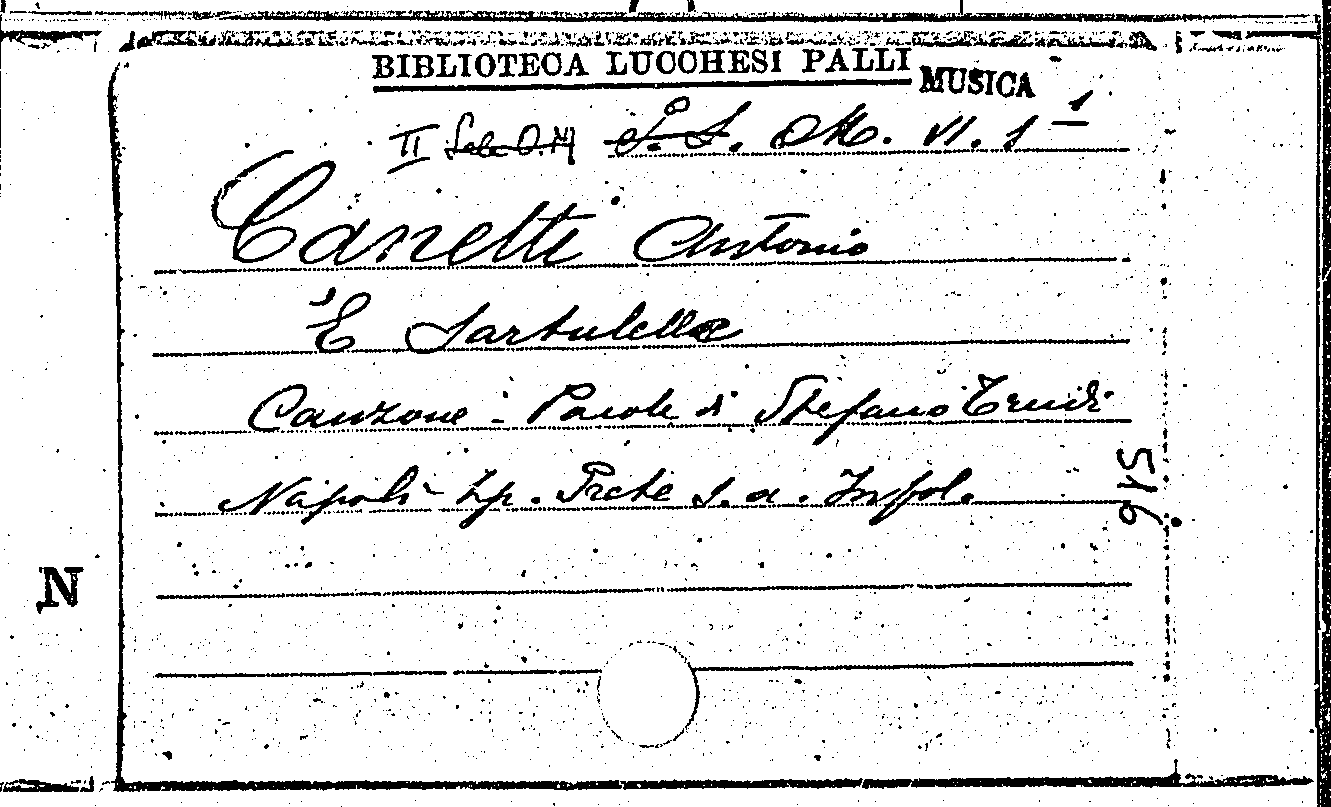 BIBLIOTECA LUCCHESI PALLI MUSICA
II Sala O.M. P. S. OM. VI. 1 1
Canetti Antonio
'E Sartulelle
Canzone - Parole di Stefano Trudi
Napoli - Tip. Prete s.a. In fol.
516
N